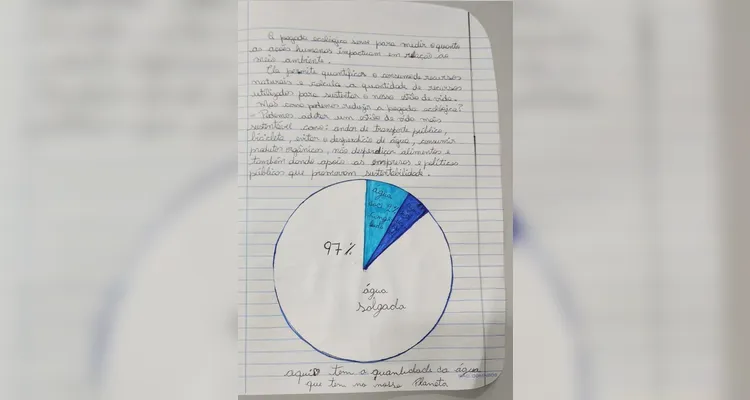 A pegada ecológica serve para medir o quanto
as ações humanas impactuam em relação ao
meio ambiente.
Ela permite quantificar o consumo de recursos
naturais e calcula a quantidade de recursos
utilizados para sustentar o nosso estilo de vida.
Mas como podemos reduzir a pegada ecológica?
- Podemos adotar um estilo de vida mais
sustentável como: andar de transporte público,
bicicleta, evitar o desperdício de água, consumir
produtos orgânicos, não desperdiçar alimentos e
também dando apoio as empresas e políticas
públicas que promovam sustentabilidade.
água
doce
97%
água
salgada
aqui tem a quantidade da água
que tem no nosso Planeta